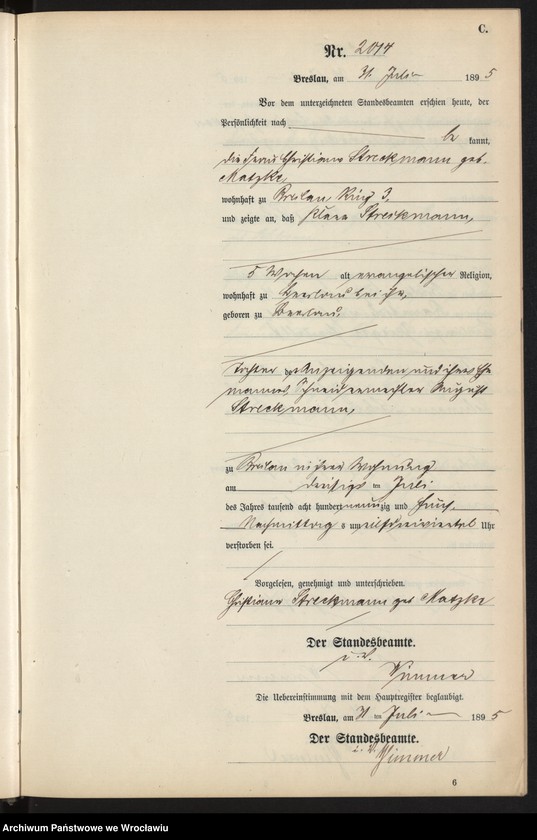 C.
Nr. 2014
Breslau, am 31. Juli 1895
Vor dem unterzeichneten Standesbeamten erschien heute, der
Persönlichkeit nach
be kannt,
die Frau Christiane Streckmann geb.
Matzke,
wohnhaft zu Breslau Ring 3,
und zeigte an, daß Klara Streckmann,
5 Wochen alt evangelischer Religion,
wohnhaft zu Breslau bei ihr,
geboren zu Breslau,
Tochter der Anzeigenden und ihres Ehe
mannes, Schneidermeister August
Streckmann,
zu Breslau in ihrer Wohnung
am dreißigsten Juli
des Jahres tausend acht hundert neunzig und fünf,
Nachmittags um elf dreiviertel Uhr
verstorben sei.
Vorgelesen, genehmigt und unterschrieben.
Christiane Streckmann geb Matzke
Der Standesbeamte.
i. V.
Die Uebereinstimmung mit dem Hauptregister beglaubigt.
Breslau, am 31 ten Juli 1895
Der Standesbeamte.
i. V.
6
Archiwum Państwowe we Wrocławiu